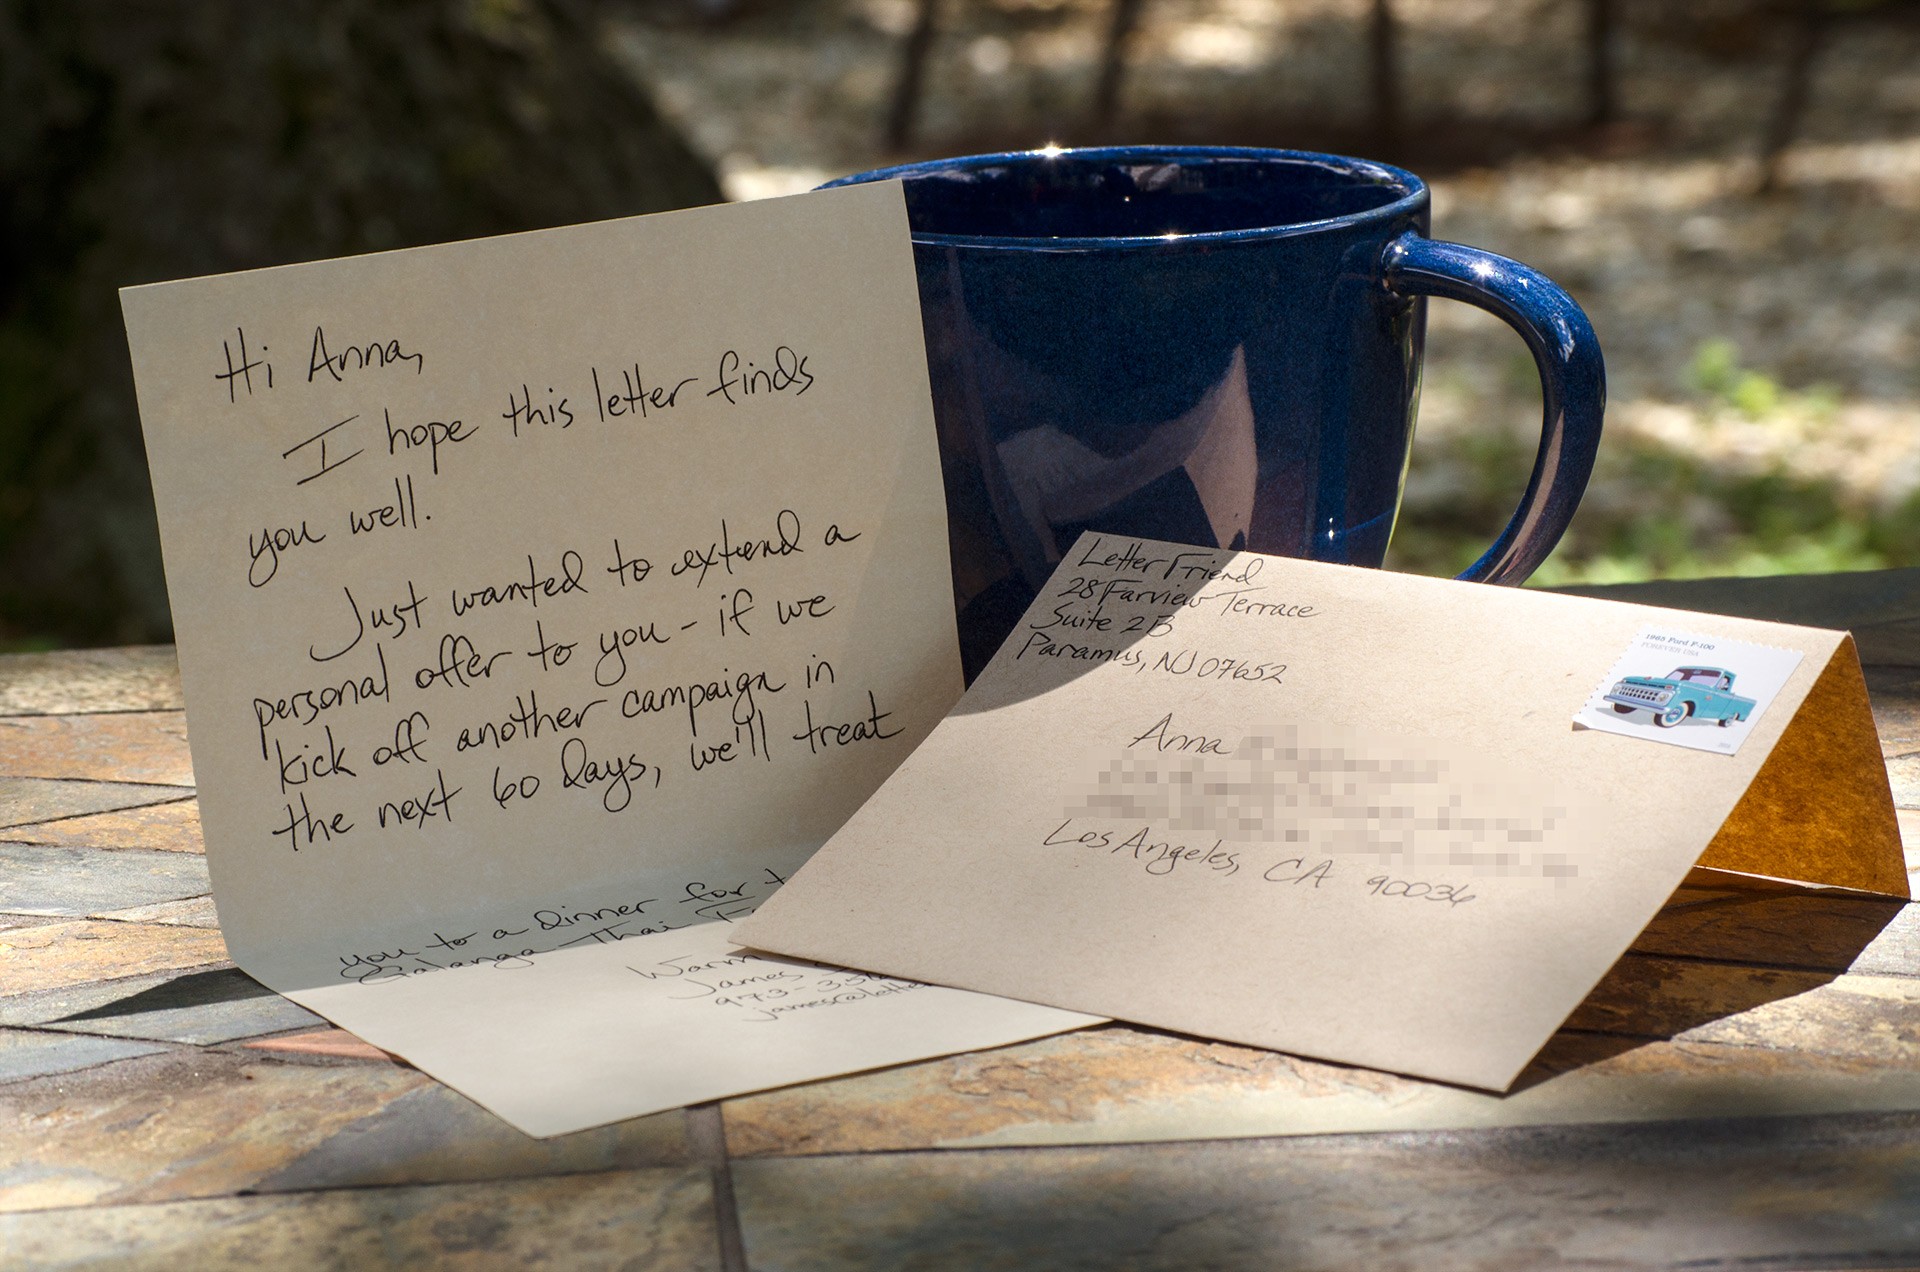 Hi Anna,
I hope this letter finds
you well.
Just wanted to extend a
personal offer to you - if we
kick off another campaign in
the next 60 days, we'll treat
you to a dinner for
Galanga Thai
James
973-35
james@lette
Letter Friend
28 Farview Terrace
Suite 2B
Paramus, NJ 07652
1965 Ford F-100
FOREVER USA
Anna
Los Angeles, CA 90036